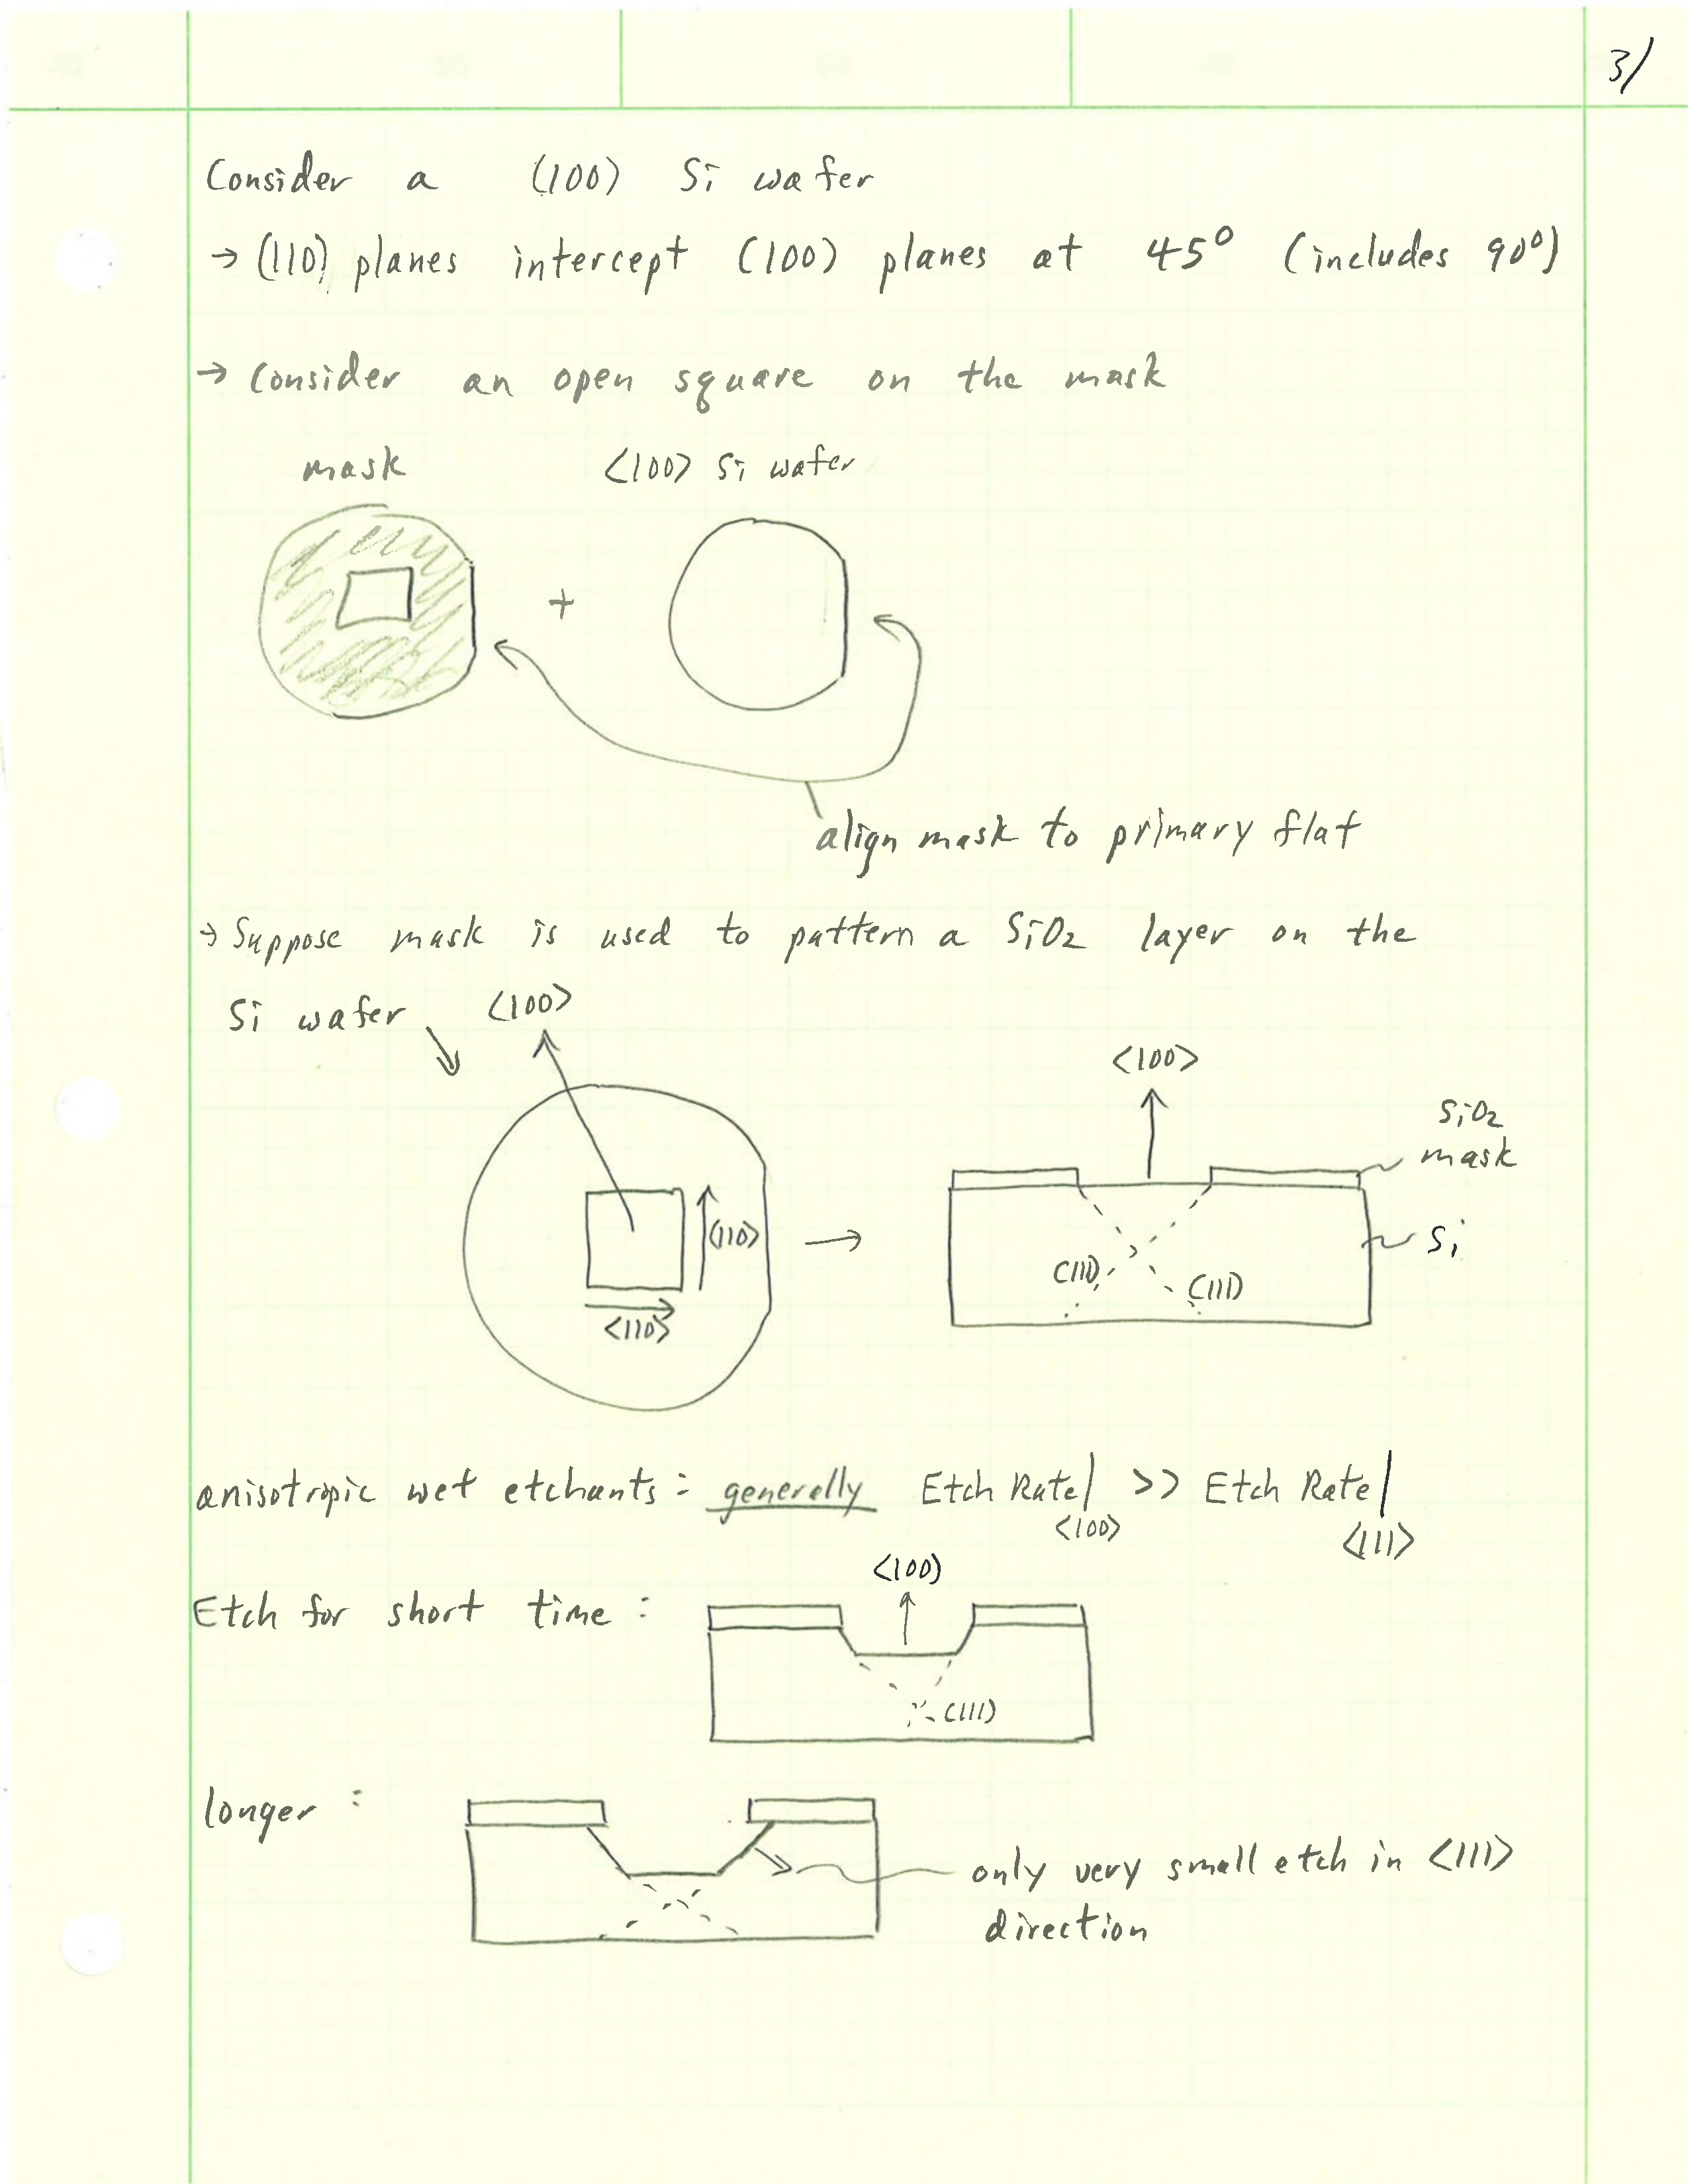 3/
Consider a (100) Si wafer
→ (110) planes intercept (100) planes at 45° (includes 90°)
→ Consider an open square on the mask
mask <100> Si wafer
+
align mask to primary flat
→ Suppose mask is used to pattern a SiO2 layer on the
Si wafer <100>
<100>
SiO2
mask
<110>
→
Si
(111) (111)
<110>
anisotropic wet etchants: generally Etch Rate| >> Etch Rate|
<100> <111>
<100)
Etch for short time:
(111)
longer:
only very small etch in <111>
direction